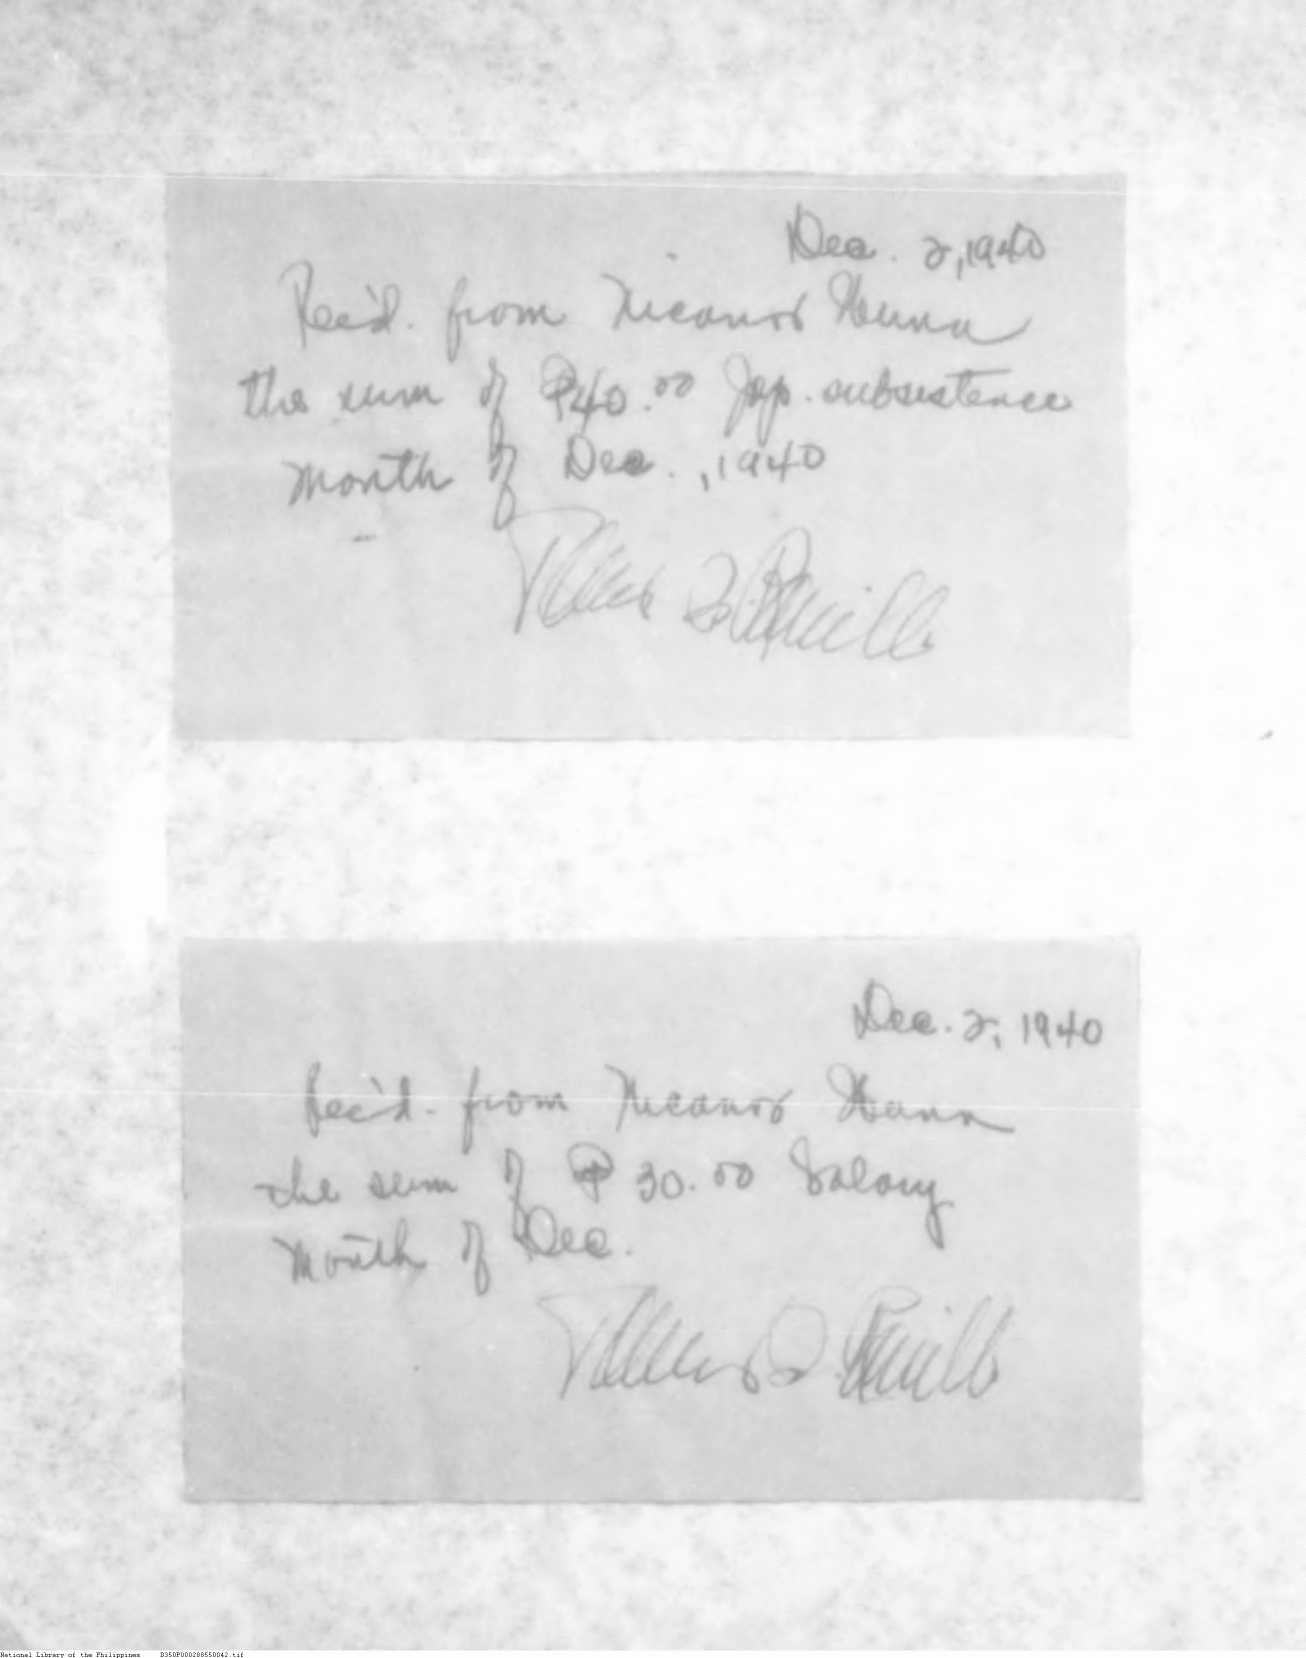 Dec. 2, 1940
Rec'd. from Nicanor
the sum of ₱40.00 Jap. subsistence
month of Dec., 1940
Dec. 2, 1940
Rec'd. from Nicanor
the sum of ₱ 30.00 Salary
Month of Dec.
National Library of the Philippines B350P000288550042.tif